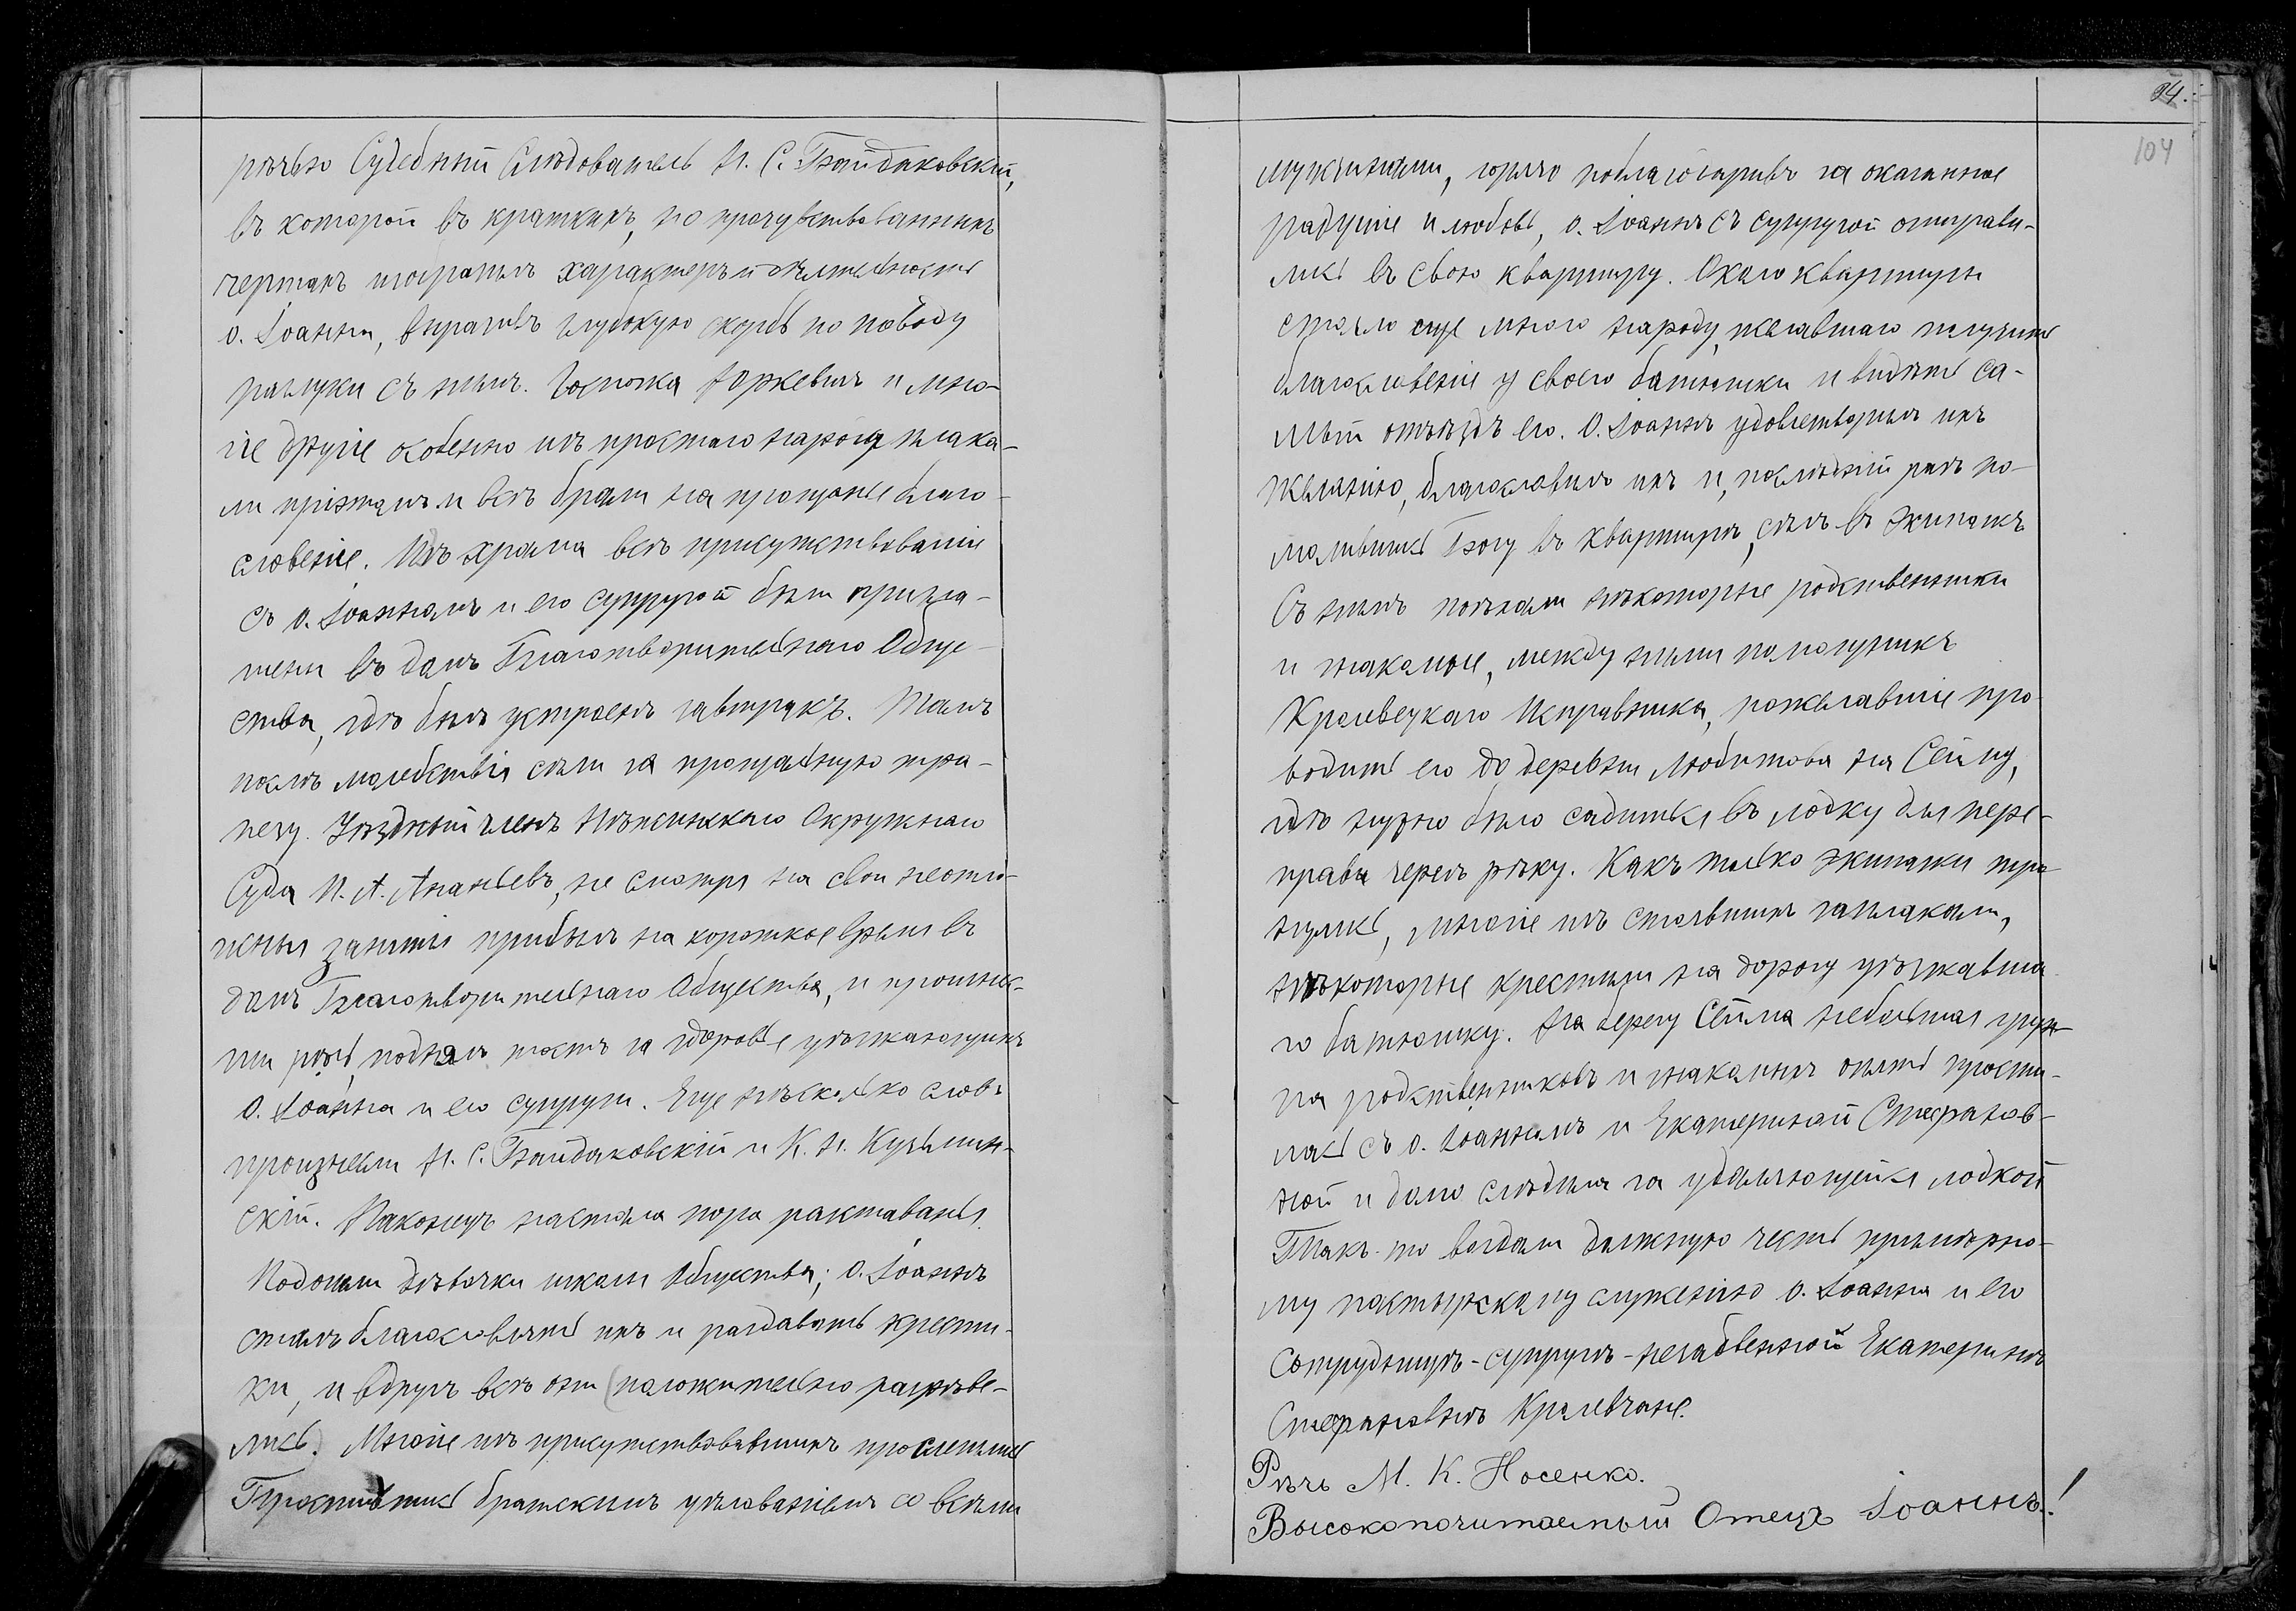 рѣчью Судебный Слѣдователь Н. С. Байдаковскій,
въ которой въ краткихъ, но прочувствованныхъ
чертахъ изобразилъ характеръ и дѣятельность
о. Іоанна, выразивъ глубокую скорбь по поводу
разлуки съ нимъ. Госпожа Юркевичъ и мно-
гіе другіе особенно изъ простаго народа плака-
ли при этомъ и всѣ брали на прощанье благо-
словеніе. Изъ храма всѣ присутствовавшіе
съ о. Іоанномъ и его супругой были пригла-
шены въ домъ Благотворительнаго Обще-
ства, гдѣ былъ устроенъ завтракъ. Тамъ
послѣ молебствія сѣли за прощальную тра-
пезу. Уѣздный членъ Нѣжинскаго Окружнаго
Суда П. А. Ананьевъ, не смотря на свои неотло-
жныя занятія прибылъ на короткое время въ
домъ Благотворительнаго Общества, и произнес-
ши рѣчь, поднялъ тостъ за здоровье уѣзжающихъ
О. Іоанна и его супруги. Еще нѣсколько словъ
произнесли Н. С. Байдаковскій и К. Н. Кузьмин-
скій. Наконецъ настала пора разставанья.
Подошли дѣвочки школы Общества; о. Іоаннъ
сталъ благословлять ихъ и раздавать крести-
ки, и вдругъ всѣ они (положительно разреве-
лись). Многіе изъ присутствовавшихъ прослезились
Простившись братскимъ цѣлованіемъ со всѣми
94.
104
мужчинами, горячо поблагодаривъ за оказанное
радушіе и любовь, о. Іоаннъ съ супругой отправи-
лись въ свою квартиру. Около квартиры
стояло еще много народу, желавшаго получить
благословеніе у своего батюшки и видѣть са-
мый отъѣздъ его. О. Іоаннъ удовлетворилъ ихъ
желанію, благословилъ ихъ и, послѣдній разъ по-
молившись Богу въ квартирѣ, сѣлъ въ экипажъ
Съ нимъ поѣхали нѣкоторые родственники
и знакомые, между ними помощникъ
Кролевецкаго Исправника, пожелавшіе про-
водить его до деревни Любитова на Сеймѣ,
гдѣ нужно было садиться въ лодку для пере-
правы черезъ рѣку. Какъ только экипажи тро-
нулись, многіе изъ стоявшихъ заплакали,
нѣкоторые крестили на дорогу уѣзжавша-
го батюшку. На берегу Сейма небольшая груп-
па родственниковъ и знакомыхъ опять прости-
лась съ о. Іоанномъ и Екатериной Стефанов-
ной и долго слѣдила за удаляющейся лодкой
Такъ-то воздали должную честь примѣрно-
му пастырскому служенію о. Іоанна и его
сотрудницѣ-супругѣ-незабвенной Екатеринѣ
Стефановнѣ Кролевчане.
Рѣчь М. К. Носенко.
Высокопочитаемый Отецъ Іоаннъ!